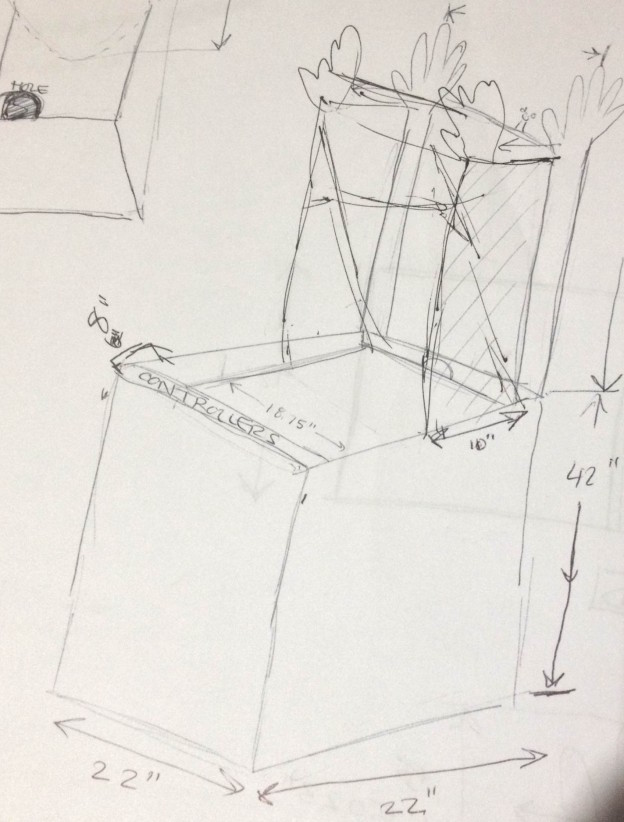 HOLE
8"
CONTROLLERS
18.75"
10"
42"
22"
22"